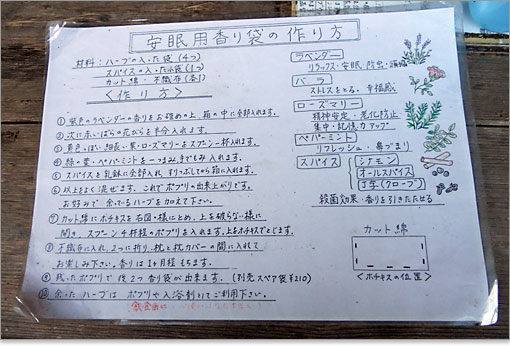 安眠用香り袋の作り方
材料：ハーブの入った袋(4つ)
スパイスの入った小袋(1つ)
カット綿・不織布(各1)
＜作り方＞
① 紫色のラベンダーの香りをお確めの上、箱の中に全部入れます。
② 次に赤いばらの花びらを半分入れます。
③ 黄色っぽい細長い葉・ローズマリーをスプーン一杯入れます。
④ 緑の葉・ペパーミントを一つまみ、手でもみ入れます。
⑤ スパイスを乳鉢に全部入れ、すりつぶしてから箱に入れます。
⑥ 以上をよく混ぜます。これでポプリの出来上がりです。
お好みで余ってるハーブを加えて下さい。
⑦ カット綿にホチキスを右図の様にとめ、上を破らない様に
開き、スプーン4杯程のポプリを入れます。上をホチキスでとじます。
⑧ 不織布に入れ、2つに折り、枕と枕カバーの間に入れて
お楽しみ下さい。香りは1ヶ月程もちます。
⑨ 残ったポプリで後2つ香り袋が出来ます。(別売スペア袋¥210)
⑩ 余ったハーブは ポプリや入浴剤としてご利用下さい。
ラベンダー
リラックス・安眠・防虫・頭痛
バラ
ストレスをとる・幸福感
ローズマリー
精神安定・老化防止
集中・記憶力アップ
ペパーミント
リフレッシュ・鼻づまり
スパイス
シナモン
オールスパイス
丁字(クローブ)
殺菌効果・香りを引きたたせる
カット綿
＜ホチキスの位置＞